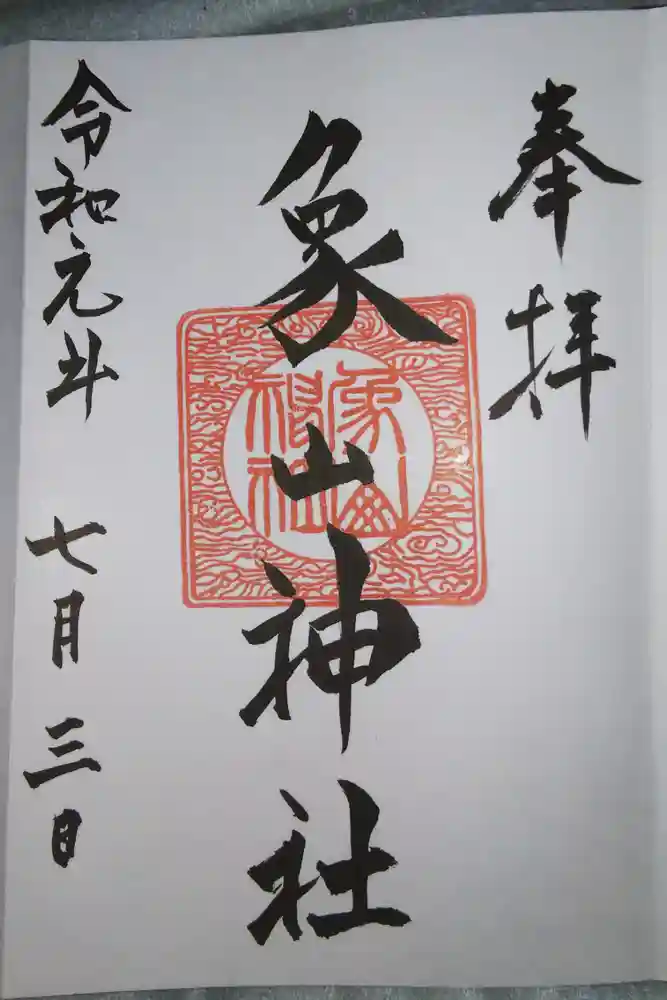 奉拝
象山神社
象山神社
令和元年 七月三日